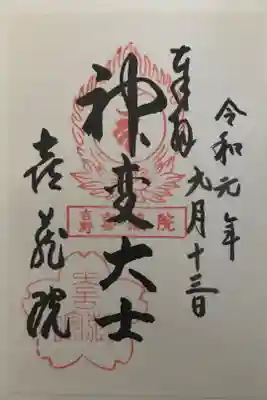 令和元年
九月十三日
奉拝
神変大士
喜蔵院
吉野喜蔵院